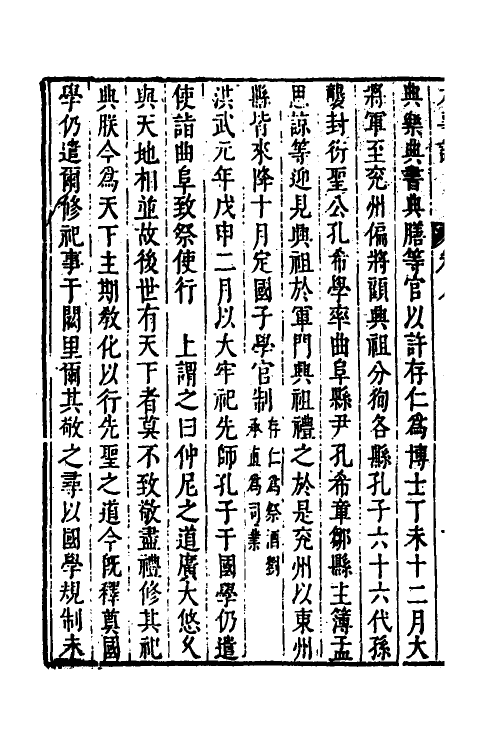 典樂典書典膳等官以許存仁爲博士丁未十二月大
將軍至兖州偏將顧興祖分狥各縣孔子六十六代孫
襲封衍聖公孔希學率曲阜縣尹孔希章鄒縣主簿孟
思諒等迎見興祖於軍門興祖禮之於是兖州以東州
縣皆來降十月定國子學官制存仁爲祭酒劉承直爲司業
洪武元年戊申二月以大牢祀先師孔子于國學仍遣
使詣曲阜致祭使行　上謂之曰仲尼之道廣大悠乆
與天地相並故後世有天下者莫不致敬盡禮修其祀
典朕今爲天下主期教化以行先聖之道今旣釋奠國
學仍遣爾修祀事于闕里爾其敬之尋以國學規制未